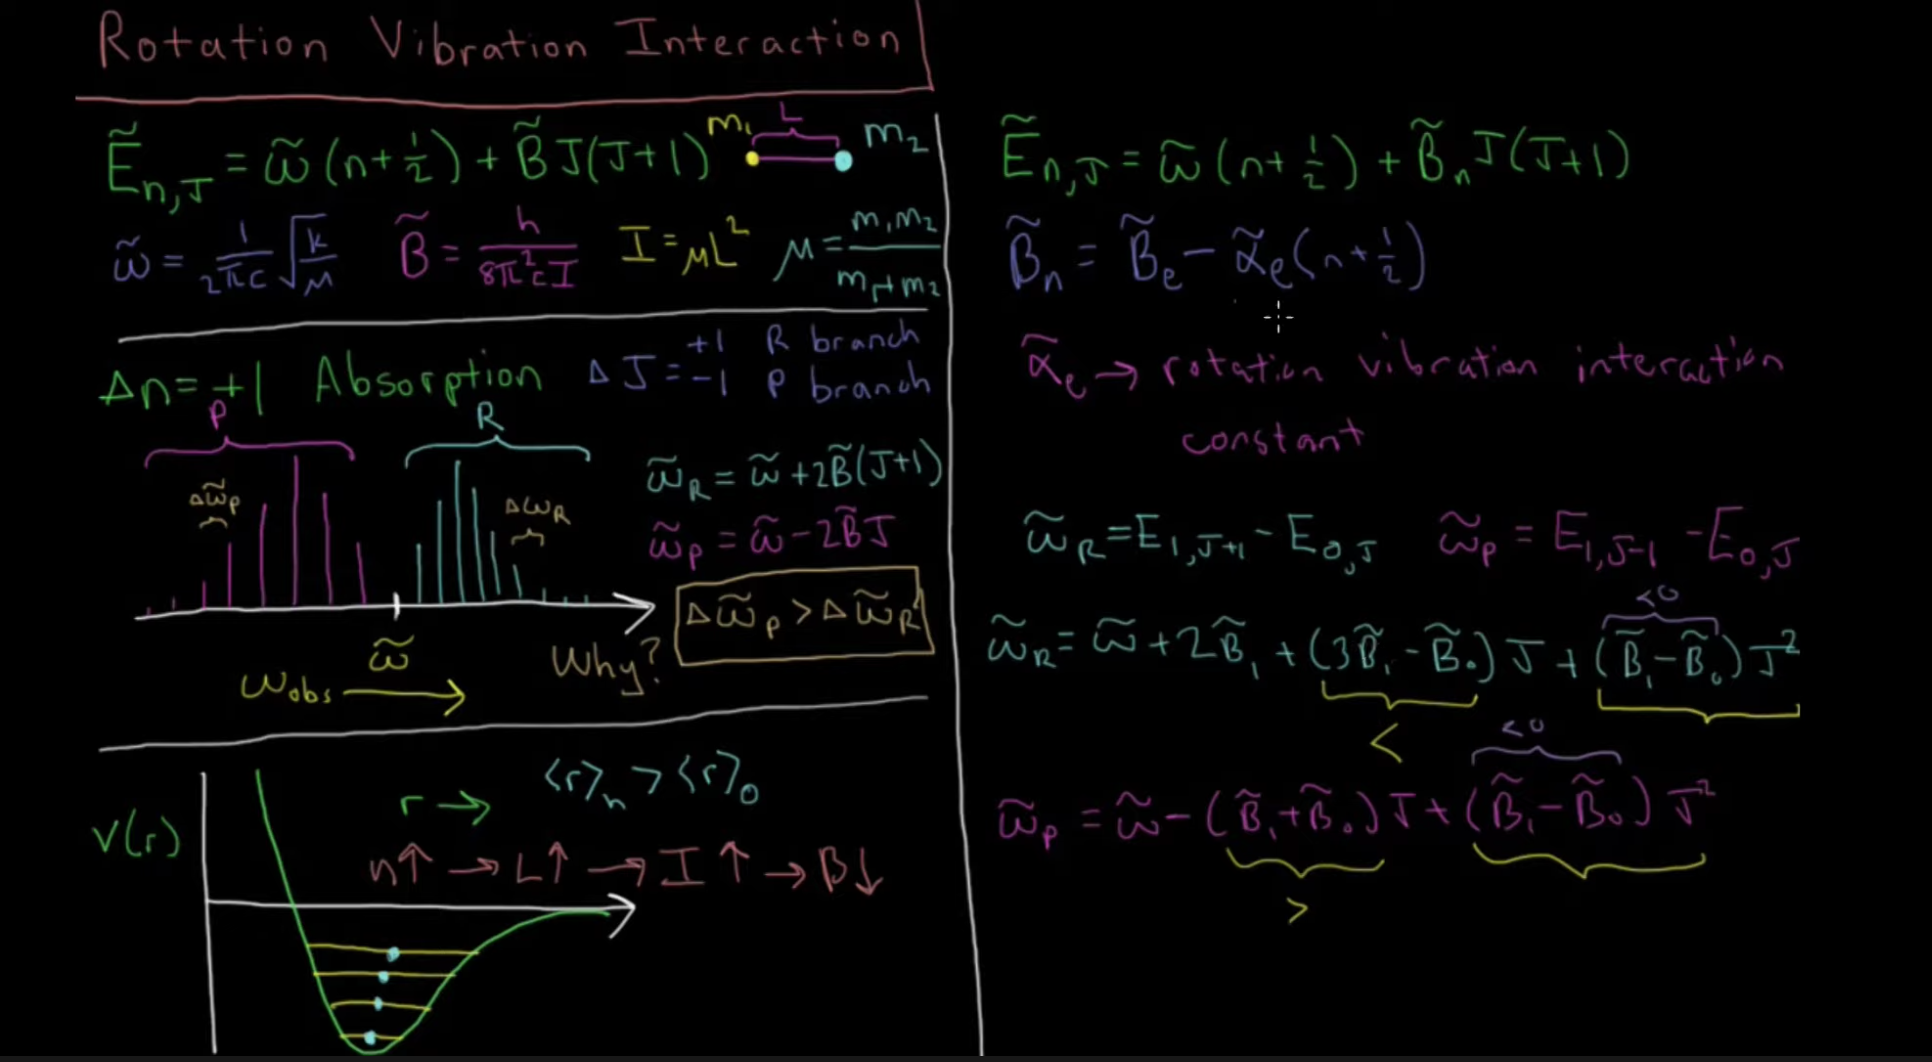 Rotation Vibration Interaction
Ẽ_{n,J} = ω̃ (n+½) + B̃ J(J+1)
m₁ L m₂
ω̃ = 1/(2πc) √(k/μ)  B̃ = h/(8π²cI)  I = μL²  μ = m₁m₂/(m₁+m₂)
Δn = +1 Absorption
ΔJ = +1 R branch
-1 P branch
P R
Δω̃_P Δω_R
ω̃_R = ω̃ + 2B̃(J+1)
ω̃_P = ω̃ - 2B̃J
Δω̃_P > Δω̃_R
Why?
ω̃
ω_obs →
V(r)
r → ⟨r⟩_n > ⟨r⟩_0
n↑ → L↑ → I↑ → B↓
Ẽ_{n,J} = ω̃ (n+½) + B̃_n J(J+1)
B̃_n = B̃_e - α̃_e(n+½)
α̃_e → rotation vibration interaction
constant
ω̃_R = E_{1,J+1} - E_{0,J}  ω̃_P = E_{1,J-1} - E_{0,J}
<0
ω̃_R = ω̃ + 2B̃₁ + (3B̃₁ - B̃₀) J + (B̃₁ - B̃₀) J²
<
<0
ω̃_P = ω̃ - (B̃₁ + B̃₀) J + (B̃₁ - B̃₀) J²
>